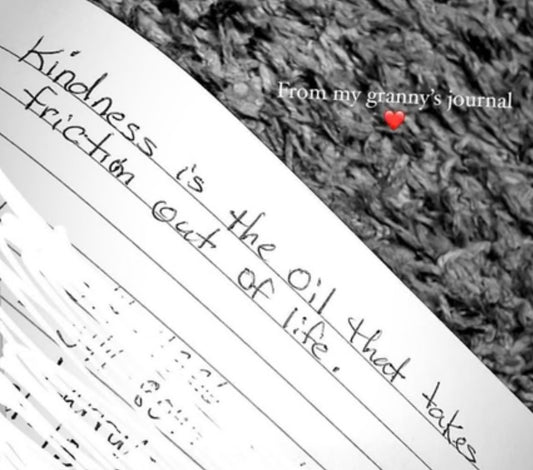 From my granny's journal
❤️
Kindness is the oil that takes
friction out of life.